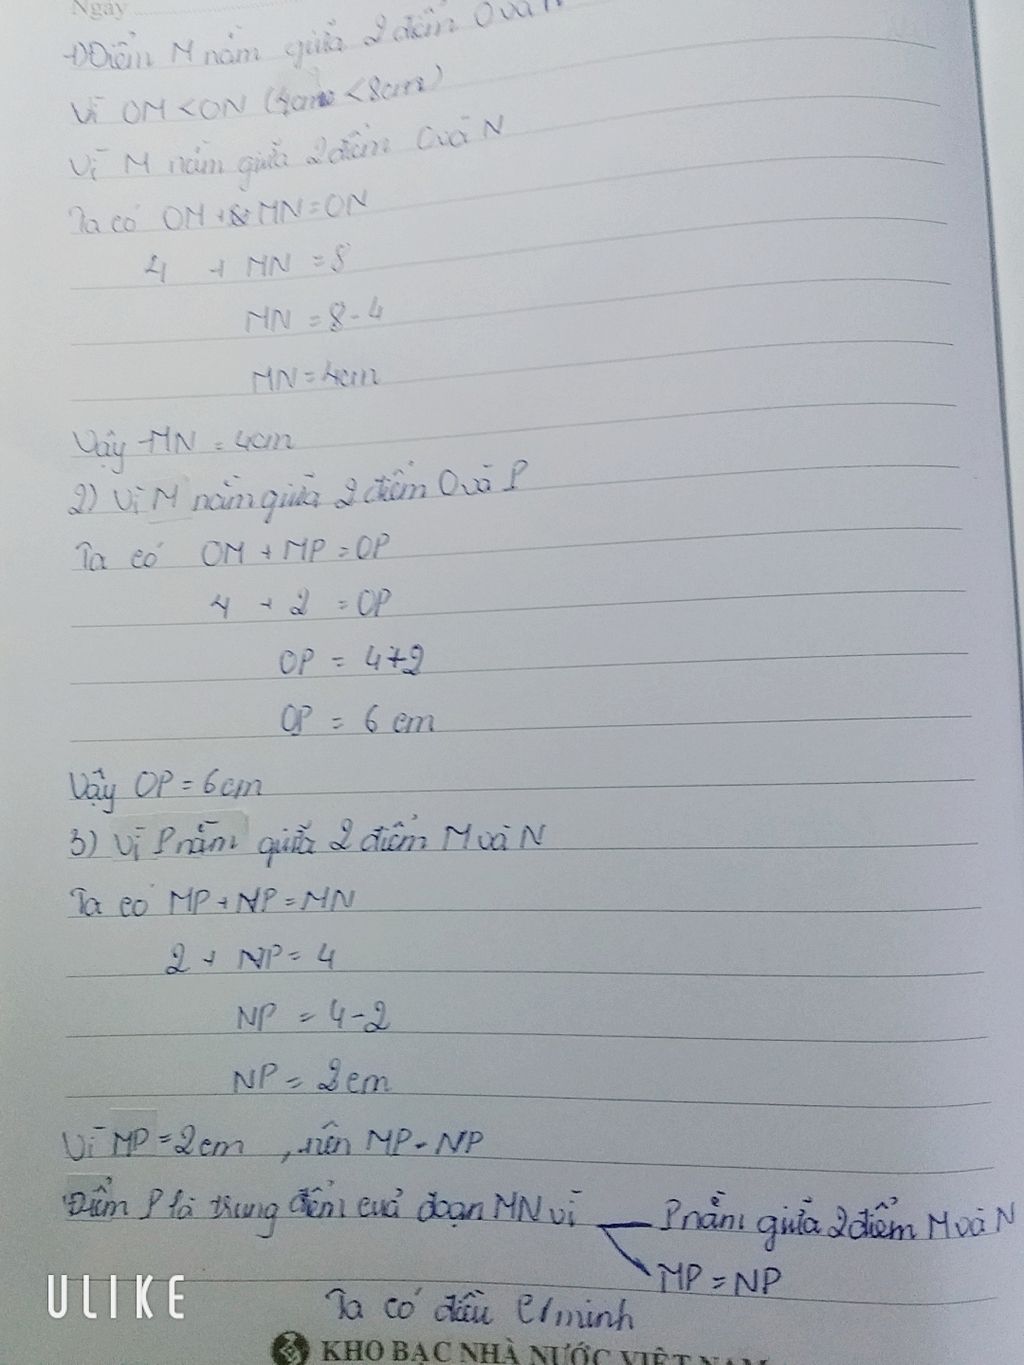 Ngày
1) Điểm M nằm giữa 2 điểm O và N
Vì OM < ON (4cm < 8cm)
Vì M nằm giữa 2 điểm O và N
Ta có OM + MN = ON
4 + MN = 8
MN = 8 - 4
MN = 4cm
Vậy MN = 4cm
2) Vì M nằm giữa 2 điểm O và P
Ta có OM + MP = OP
4 + 2 = OP
OP = 4 + 2
OP = 6 cm
Vậy OP = 6cm
3) Vì P nằm giữa 2 điểm M và N
Ta có MP + NP = MN
2 + NP = 4
NP = 4 - 2
NP = 2cm
Vì MP = 2cm, nên MP = NP
Điểm P là trung điểm của đoạn MN vì P nằm giữa 2 điểm M và N
MP = NP
Ta có điều c/minh
ULIKE
KHO BẠC NHÀ NƯỚC VIỆT NAM